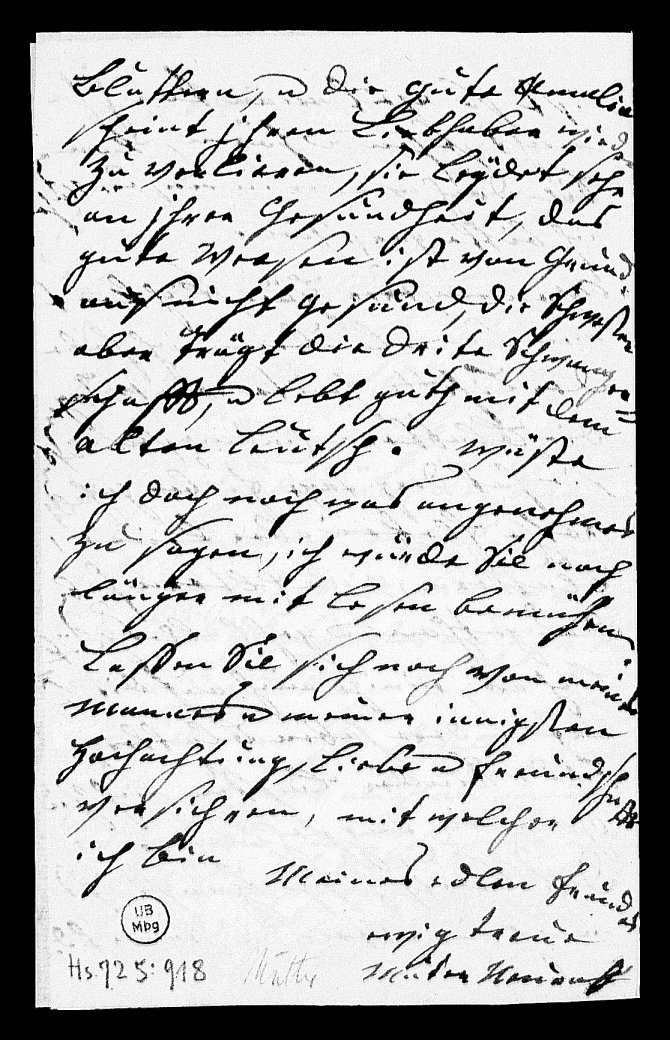 Blattern, u die gute Amalie
scheint jhren Liebhaber wied
zu verlieren, sie leydet sehr
an jhrer Gesundheit, das
gute Weesen ist von Grund
aus nicht gesund, die Schwester
aber trägt die drite Schwanger=
schafft, u lebt guth mit dem
alten Leutsch. wüste
ich doch noch was angenehmes
zu sagen, ich würde Sie noch
länger mit lesen bemühen
Lassen Sie sich noch von meines
Mannes u meiner innigsten
Hochachtung, Liebe u Freundschafft
versichren, mit welcher
ich bin
Meines edlen Freundes
ewig treue
Muter
UB
Mbg
Hs 725:918